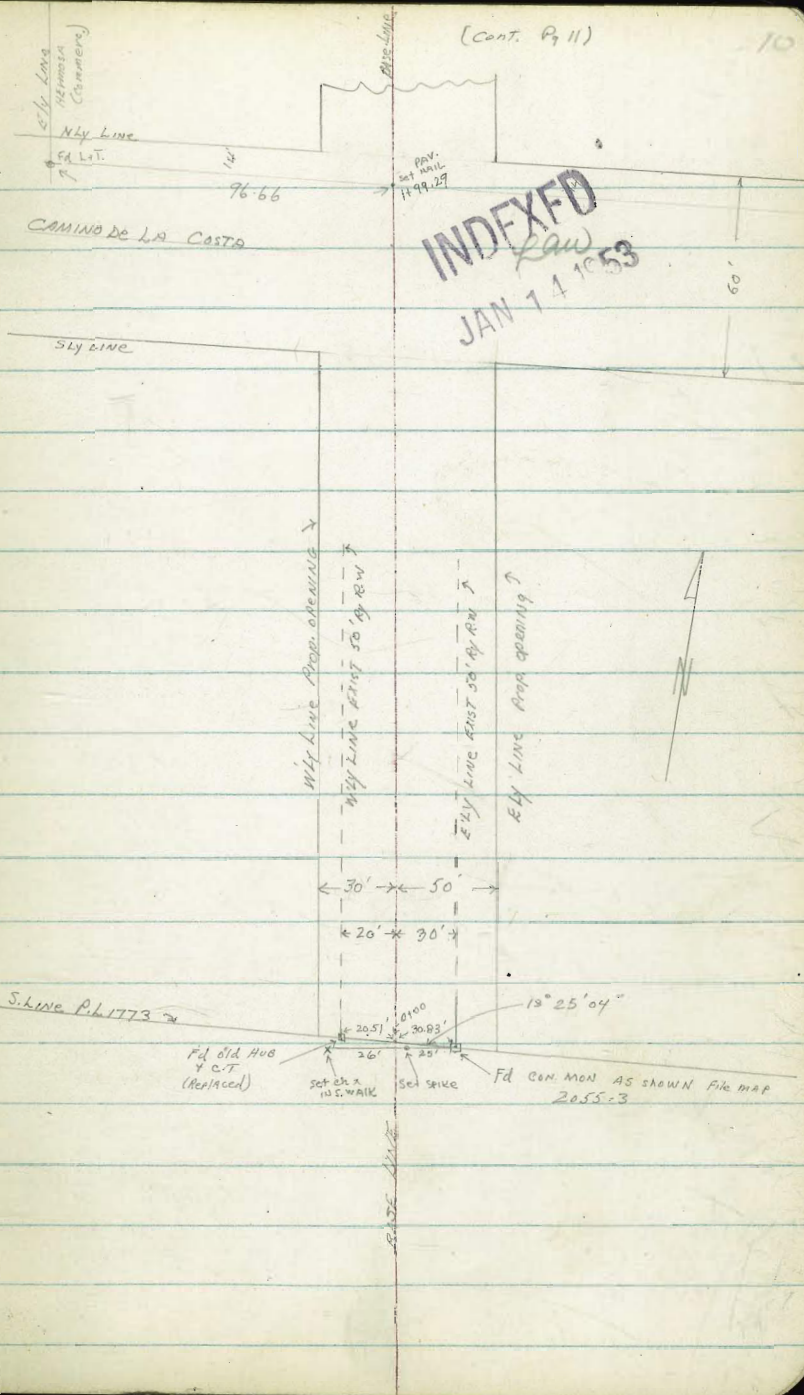 (Cont. Pg 11)
10
Base Line
Ely Line
Hermosa
(Commerc)
Nly Line
Fd L&T.
14'
96.66
PAV.
Set NAIL
1+99.29
CAMINO De LA COSTA
INDEXED
JAN 14 1953
60'
Sly LINE
W'ly Line Prop. OPENING
W'ly LINE EXIST 50' Ry R.W
E'LY LINE EXIST 50' Ry R.W
ELy LINE Prop. OPENING
N
30' 50'
20' 30'
S. LINE P.L 1773
0+00
20.51' 30.83'
18° 25' 04"
26' 25'
Fd old HUB
& C.T
(Replaced)
Set ch x
IN S. WALK
Set SPIKE
Fd CON. MON AS SHOWN File MAP
2055-3
BASE LINE